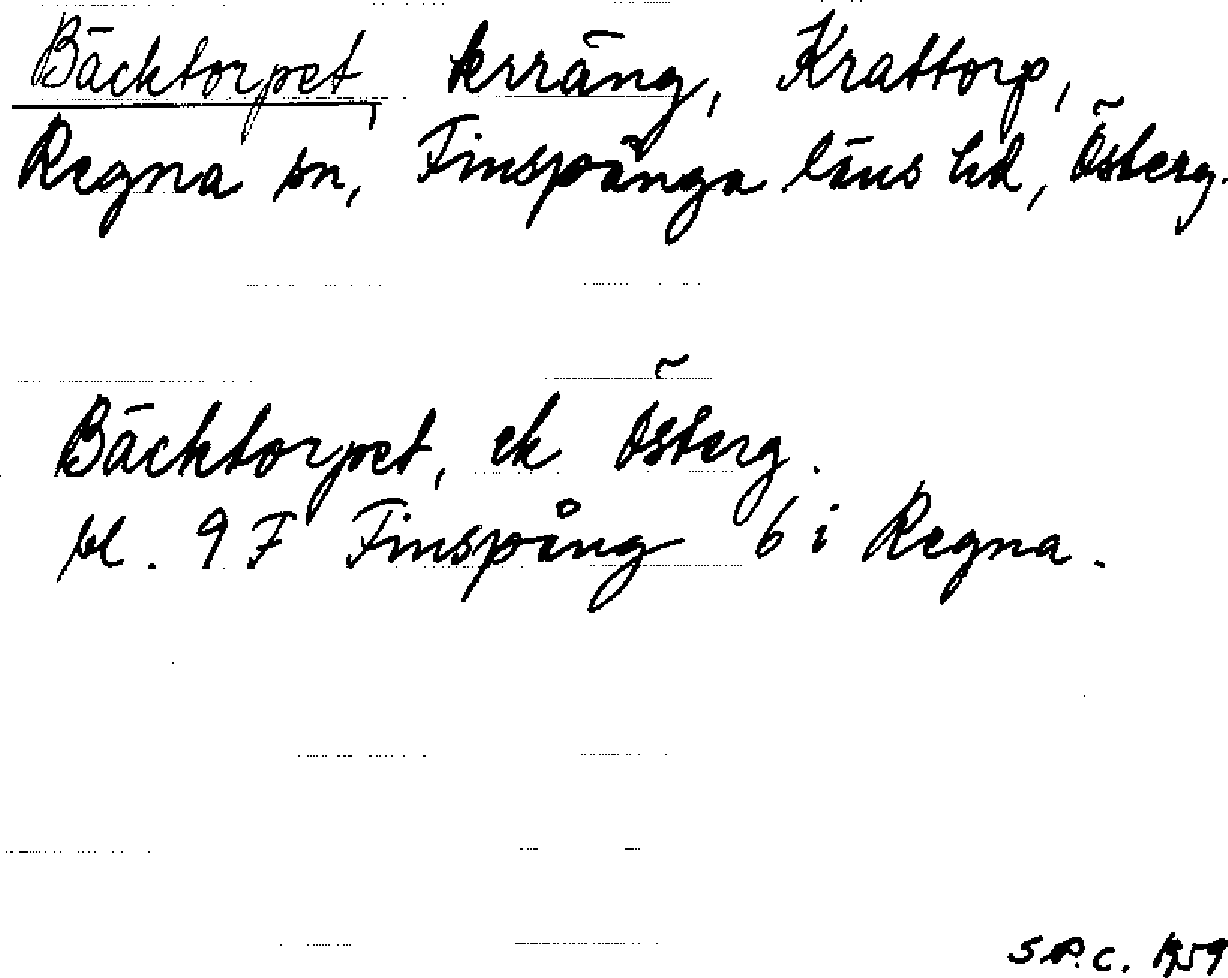 Bäcktorpet, terräng, Krattorp,
Regna sn, Finspånga läns hd, Österg.
Bäcktorpet, ek Österg.
bl. 9 F Finspång 6 i Regna.
S.P.C. 1959